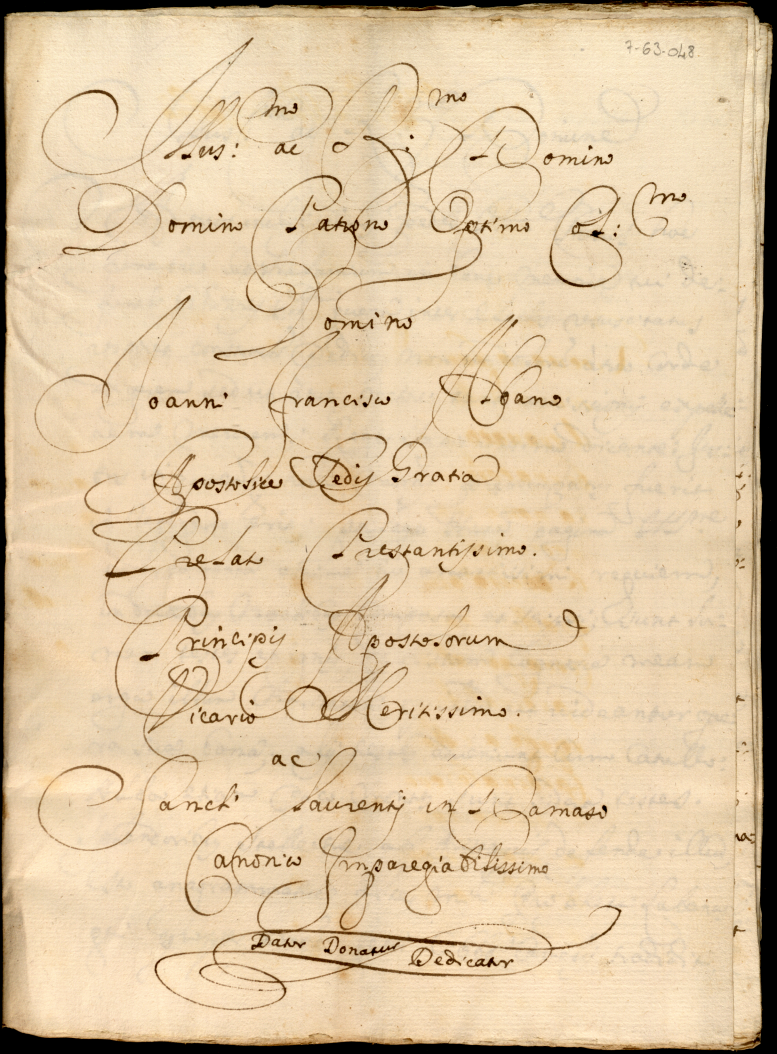 7-63-048.
Illus:mo ac R:mo Domino
Domino Patrono Optimo Col:mo
Domino
Joanni Francisco Albano
Apostolice Sedis Gratia
Prelato Prestantissimo.
Principis Apostolorum
Vicario Meritissimo.
ac
Sancti Laurentij in Damaso
Canonico Imparegiabilissimo
Datur Donatur Dedicatur